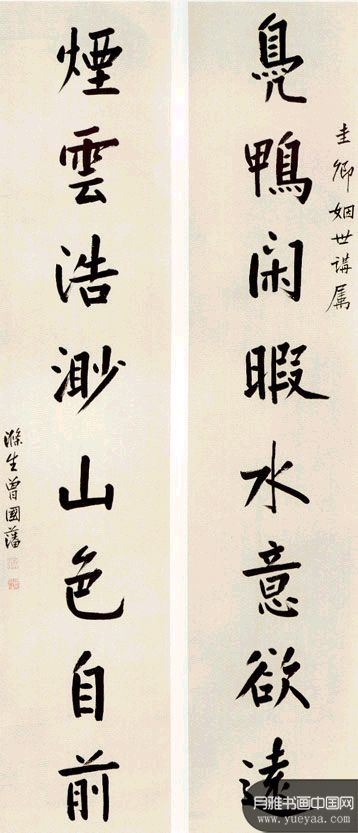 圭卿姻世講屬
鳧鴨闲暇水意欲遠
煙雲浩渺山色自前
滌生曾國藩
月雅书画中国网
www.yueyaa.com